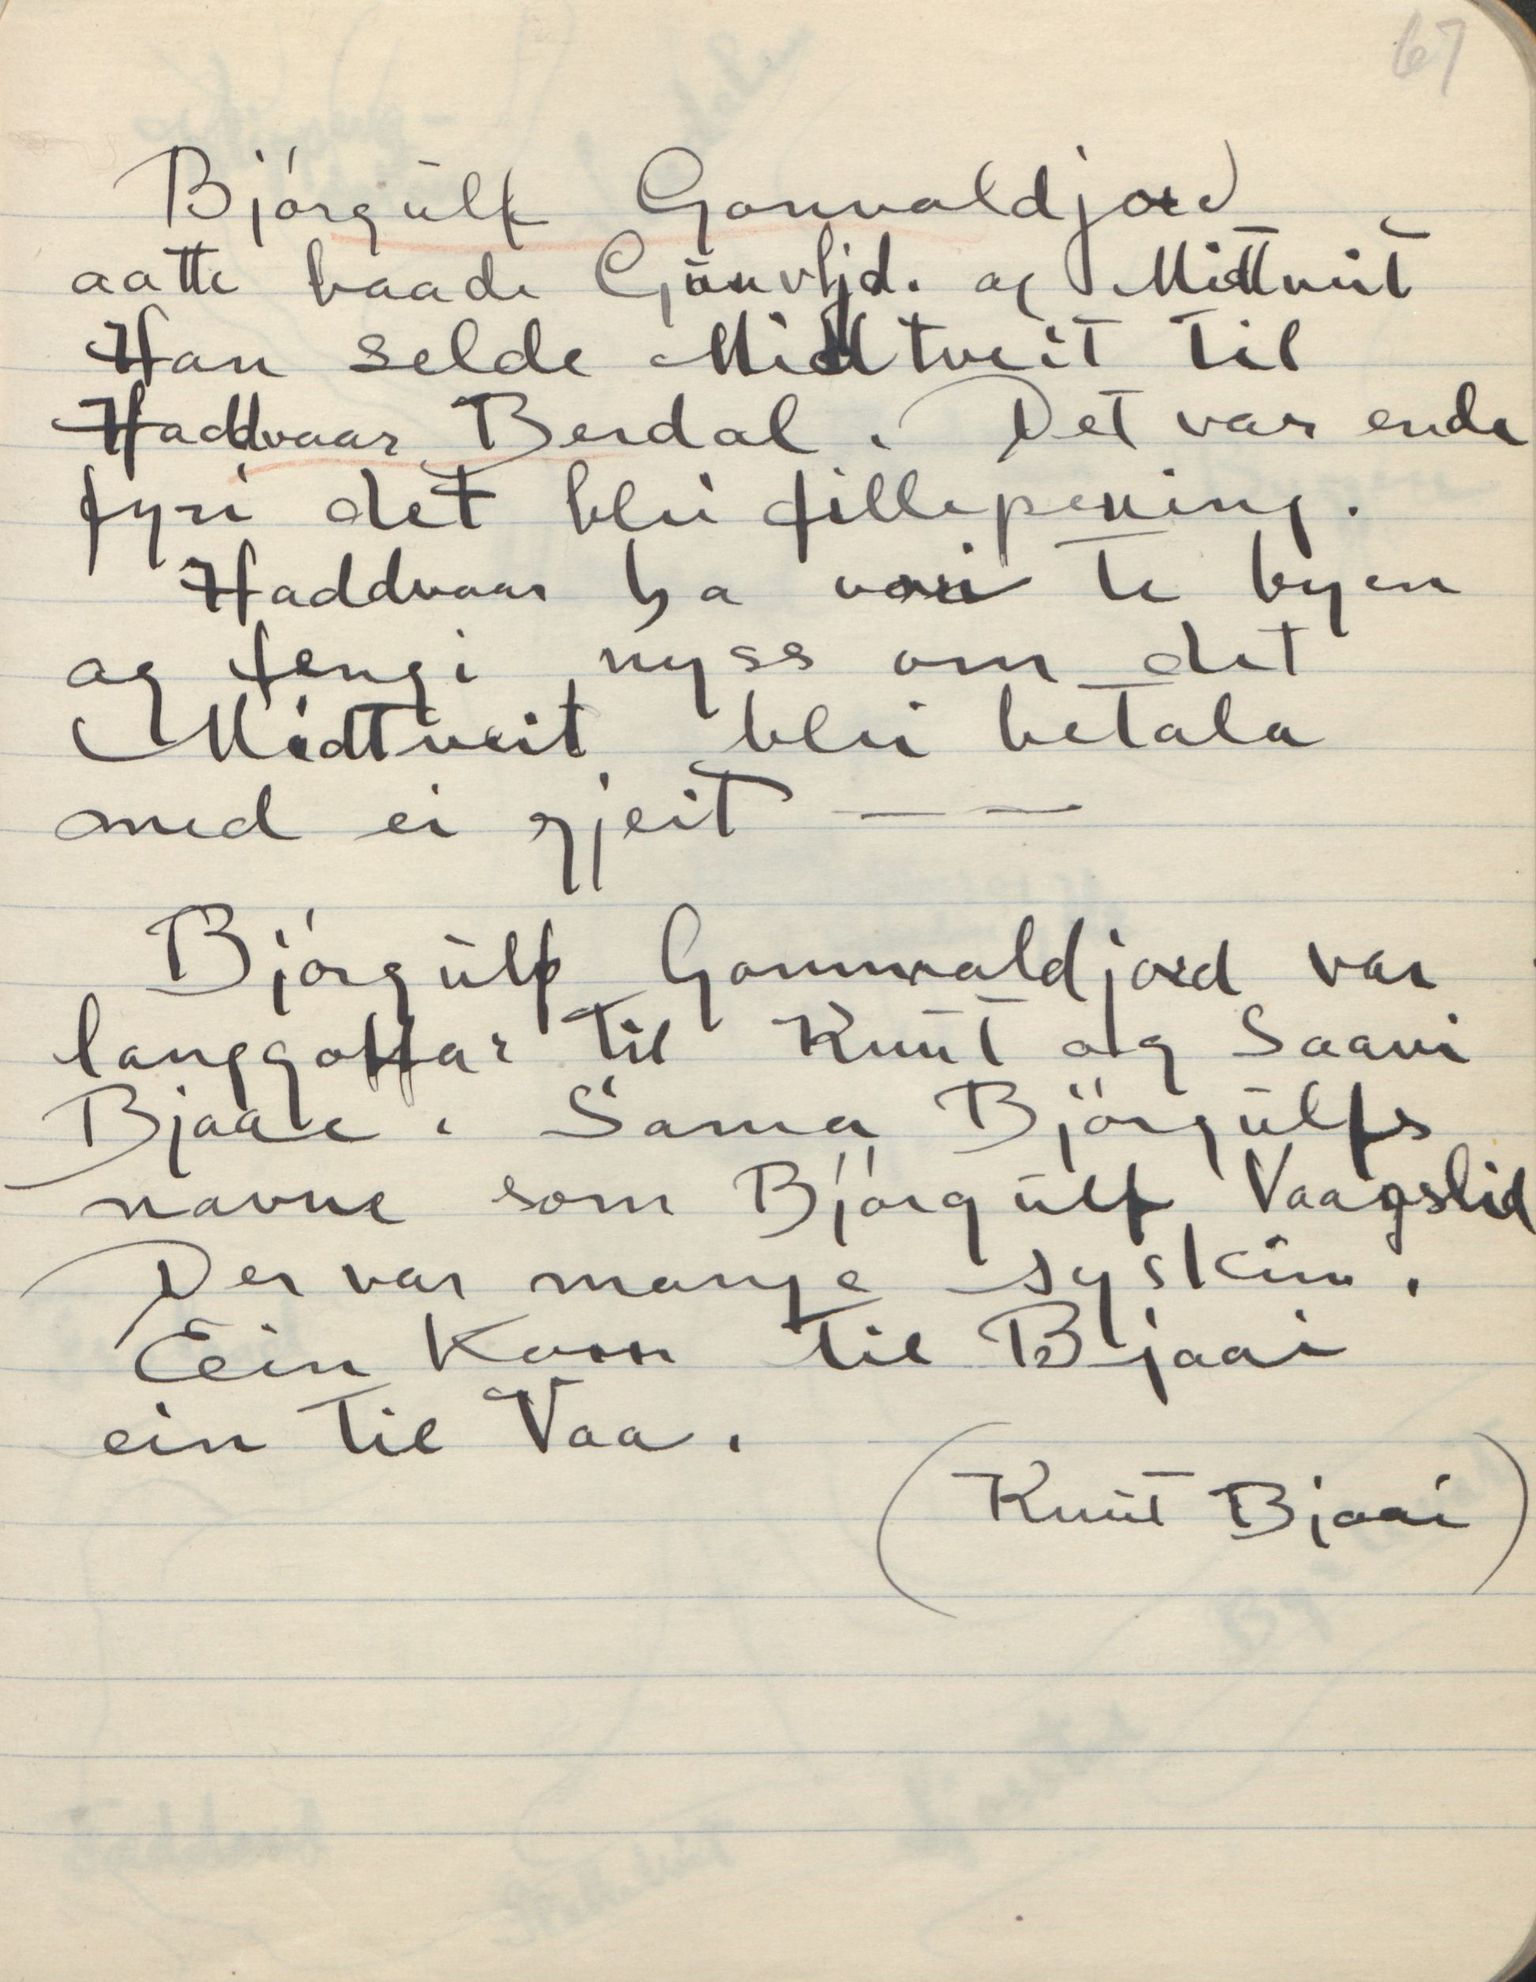 67
Bjórgülf Gonvaldjord
aatte baade Gönvljd. og Mittveit
Han selde Midtveit til
Haddvaar Berdal. Det var ende
fyri det blei fillepening.
Haddvaar ha vori te byen
og fengi nyss om det
Midtveit blei betala
med ei gjeit — —
Bjórgülf Gonnvaldjord var
langgoffar til Knüt og Saavi
Bjaae. Sama Björgülfs
navne som Bjórgülf Vaagslid
Der var mange syskin.
Eein kom til Bjaai
ein til Vaa.
(Knüt Bjaai)